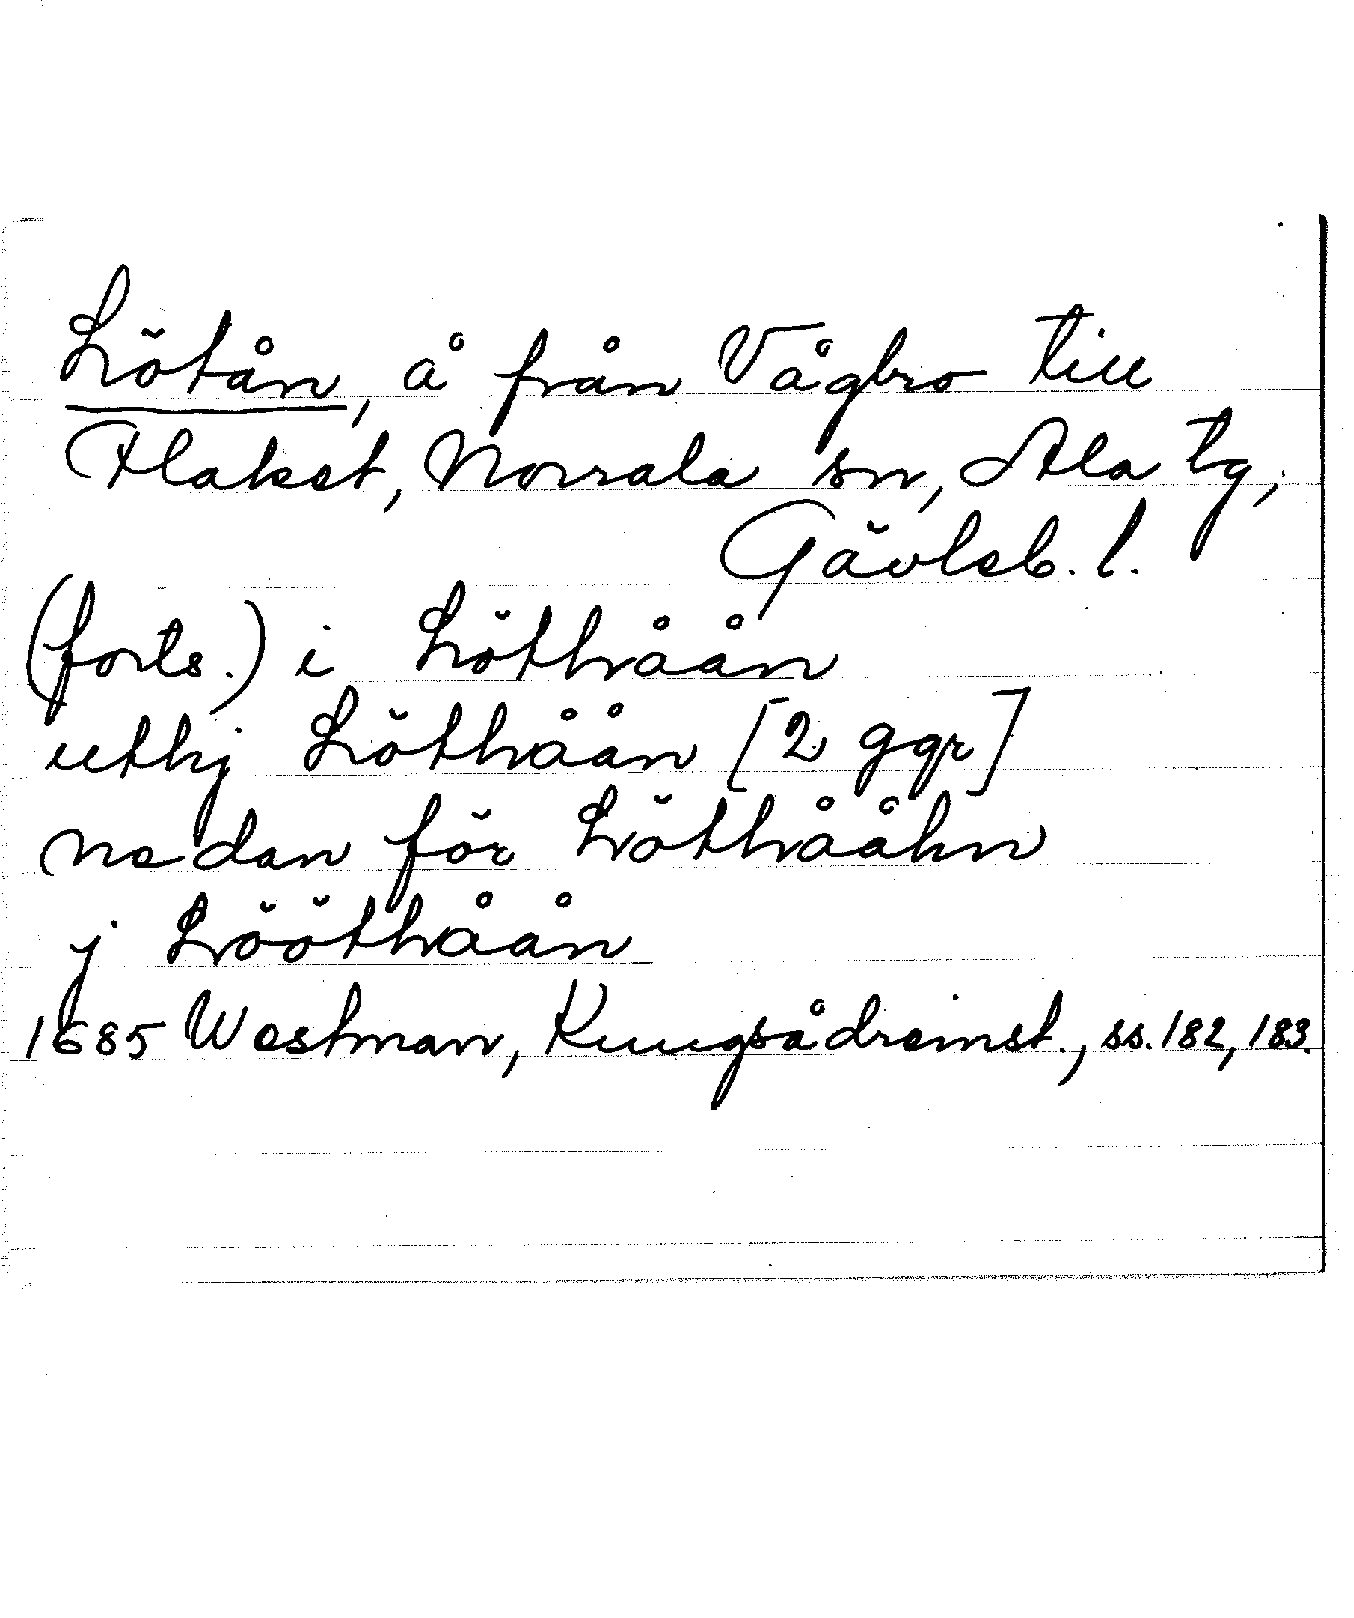 Lötån, å från Vågbro till
Flaket, Norrala sn, Ala tg,
Gävleb. l.
(forts.) i Löthåån
uthj Löthåån [2 ggr]
nedan för Löthååhn
j Lööthåån
1685 Westman, Kungsådreinst., ss. 182, 183.